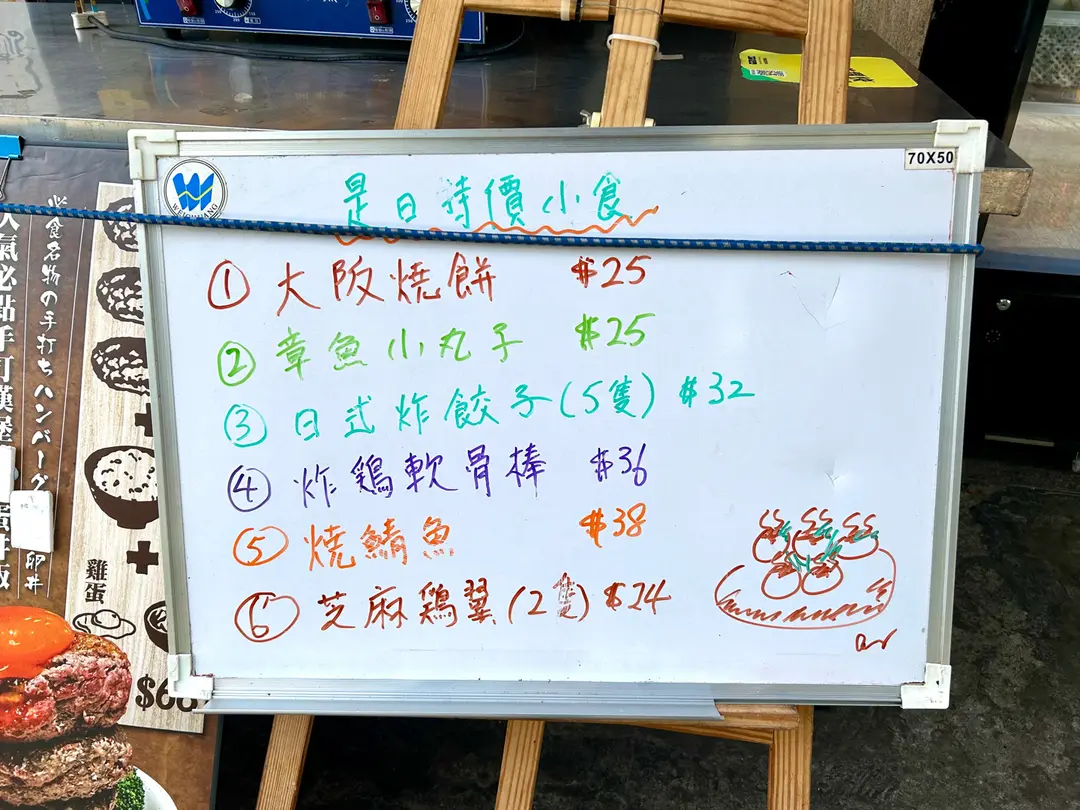 70X50
是日特價小食
① 大阪燒餅 $25
② 章魚小丸子 $25
③ 日式炸餃子(5隻) $32
④ 炸鷄軟骨棒 $36
⑤ 燒鯖魚 $38
⑥ 芝麻鷄翼(2隻) $24
人氣必點手打漢堡
食名物の手打ちハンバーグ
卵丼
雞蛋
+
+
$68